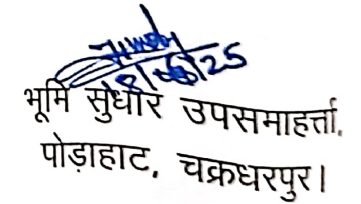 भूमि सुधार उपसमाहर्त्ता,
पोड़ाहाट, चक्रधरपुर।